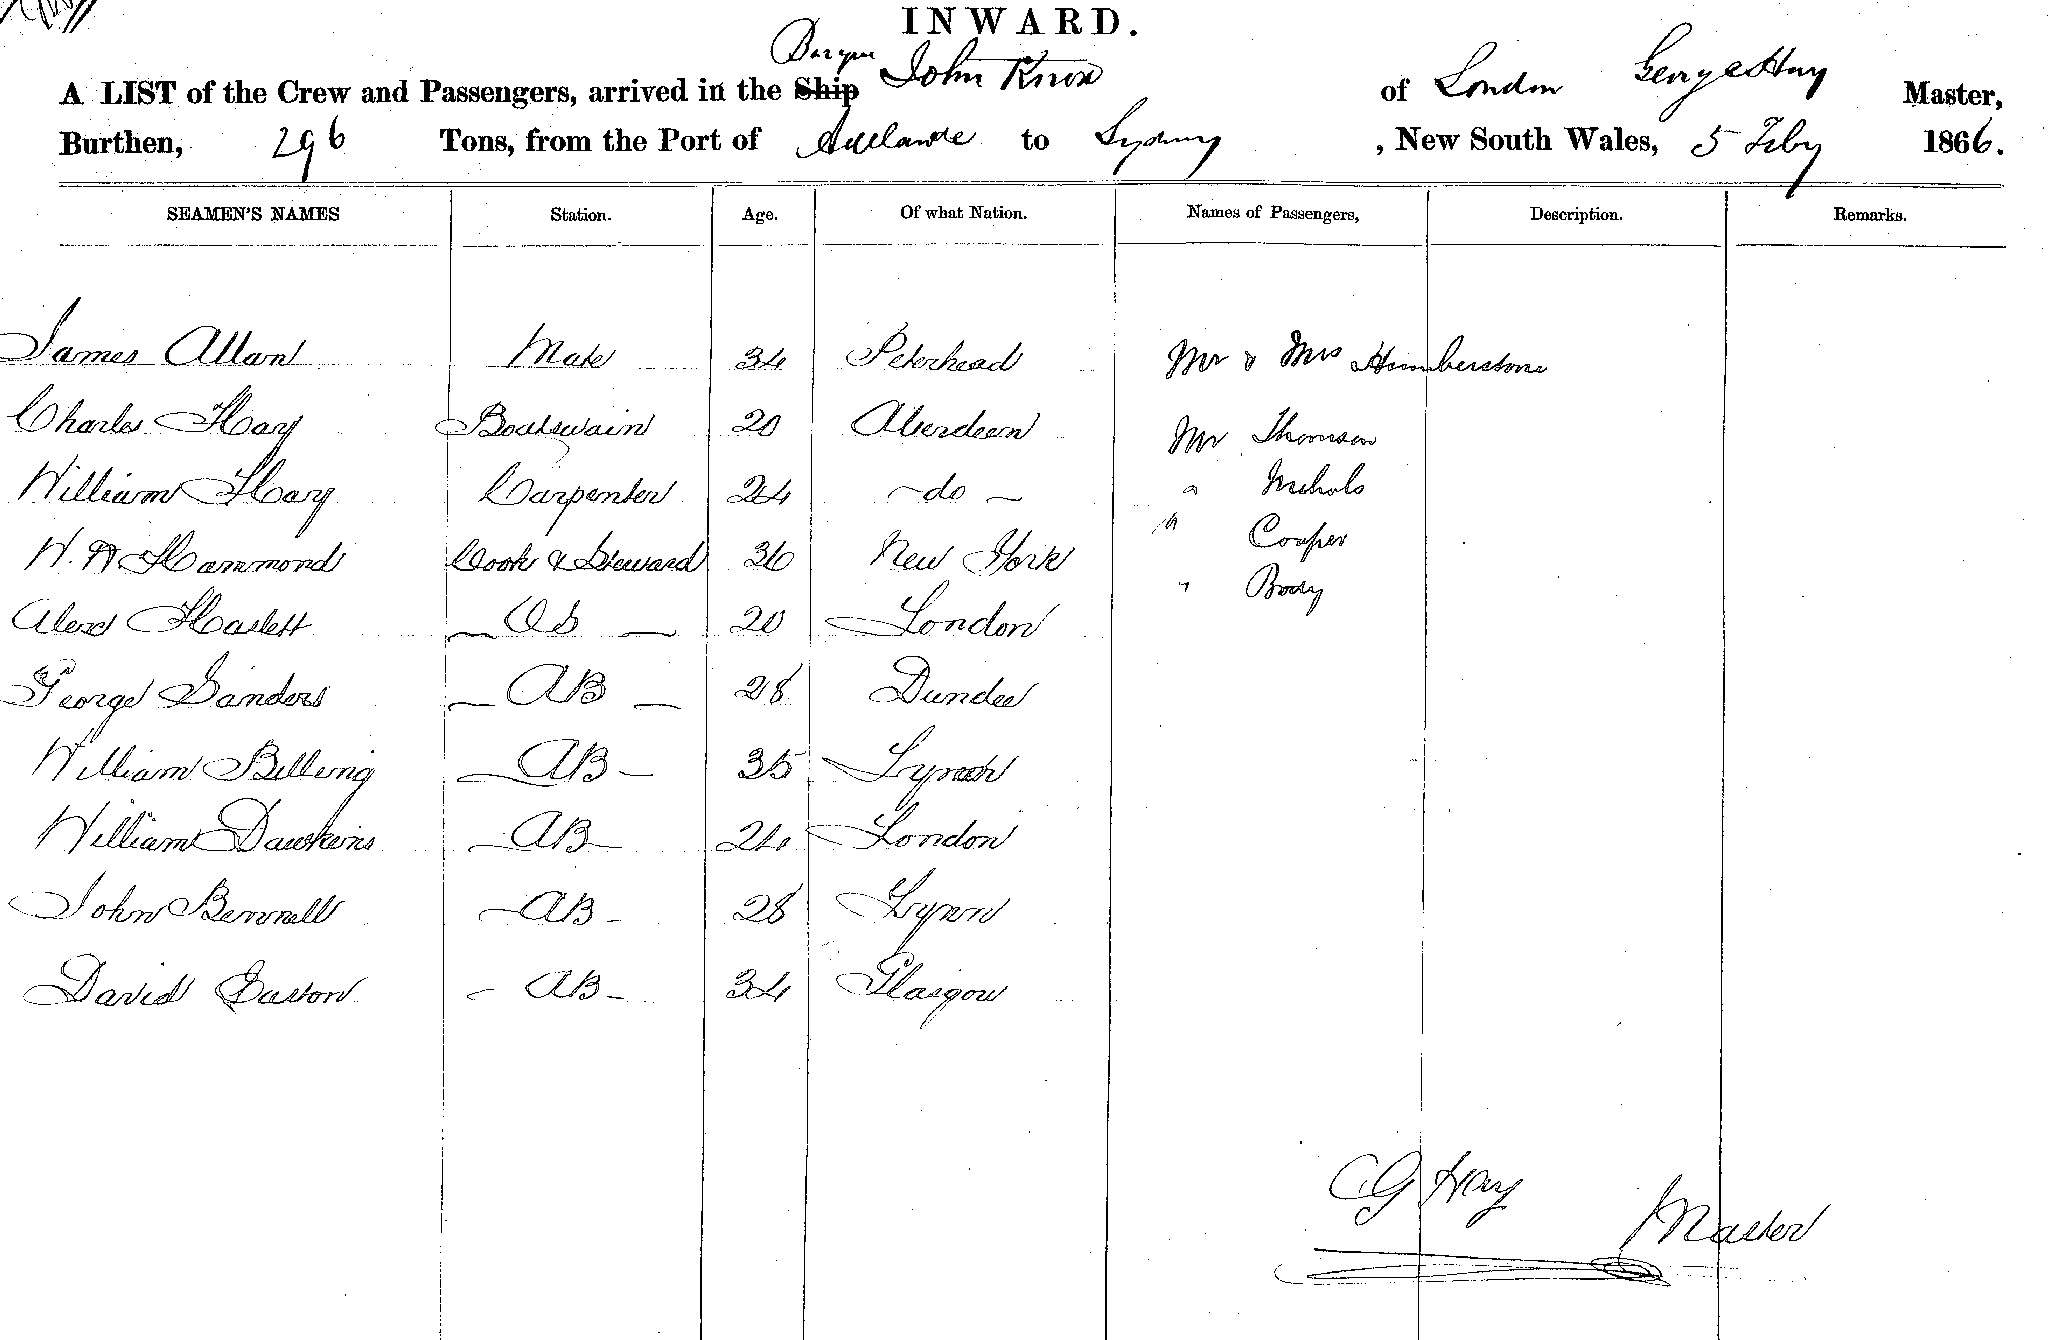 INWARD.
Barque
A LIST of the Crew and Passengers, arrived in the Ship John Knox of London George Hay Master,
Burthen, 296 Tons, from the Port of Adelaide to Sydney , New South Wales, 5 Feby 1866.
SEAMEN'S NAMES Station. Age. Of what Nation. Names of Passengers, Description. Remarks.
James Allan Mate 34 Peterhead Mr & Mrs Humberstone
Charles Hay Boatswain 20 Aberdeen Mr Thomson
William Hay Carpenter 24 -do- " Nichols
W. Hammond Cook & Steward 36 New York " Cooper
" Body
Alexd Haslett OS 20 London
George Sanders AB 28 Dundee
William Billing AB 35
William Dawkins AB 24 London
John Bennell AB 28 Lynn
David Easton AB 34 Glasgow
CG Hay
Master